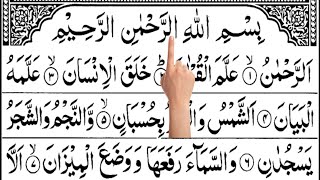 بِسْمِ اللهِ الرَّحْمٰنِ الرَّحِيْمِ
اَلرَّحْمٰنُ ۙ﴿۱﴾ عَلَّمَ ﴿۲﴾ خَلَقَ الْاِنْسَانَ ۙ﴿۳﴾ عَلَّمَهُ
الْبَيَانَ ﴿۴﴾ اَلشَّمْسُ بِحُسْبَانٍ ۙ﴿۵﴾ وَّالنَّجْمُ وَالشَّجَرُ
يَسْجُدٰنِ ﴿۶﴾ وَالسَّمَآءَ رَفَعَهَا وَوَضَعَ الْمِيْزَانَ ۙ﴿۷﴾ اَلَّا